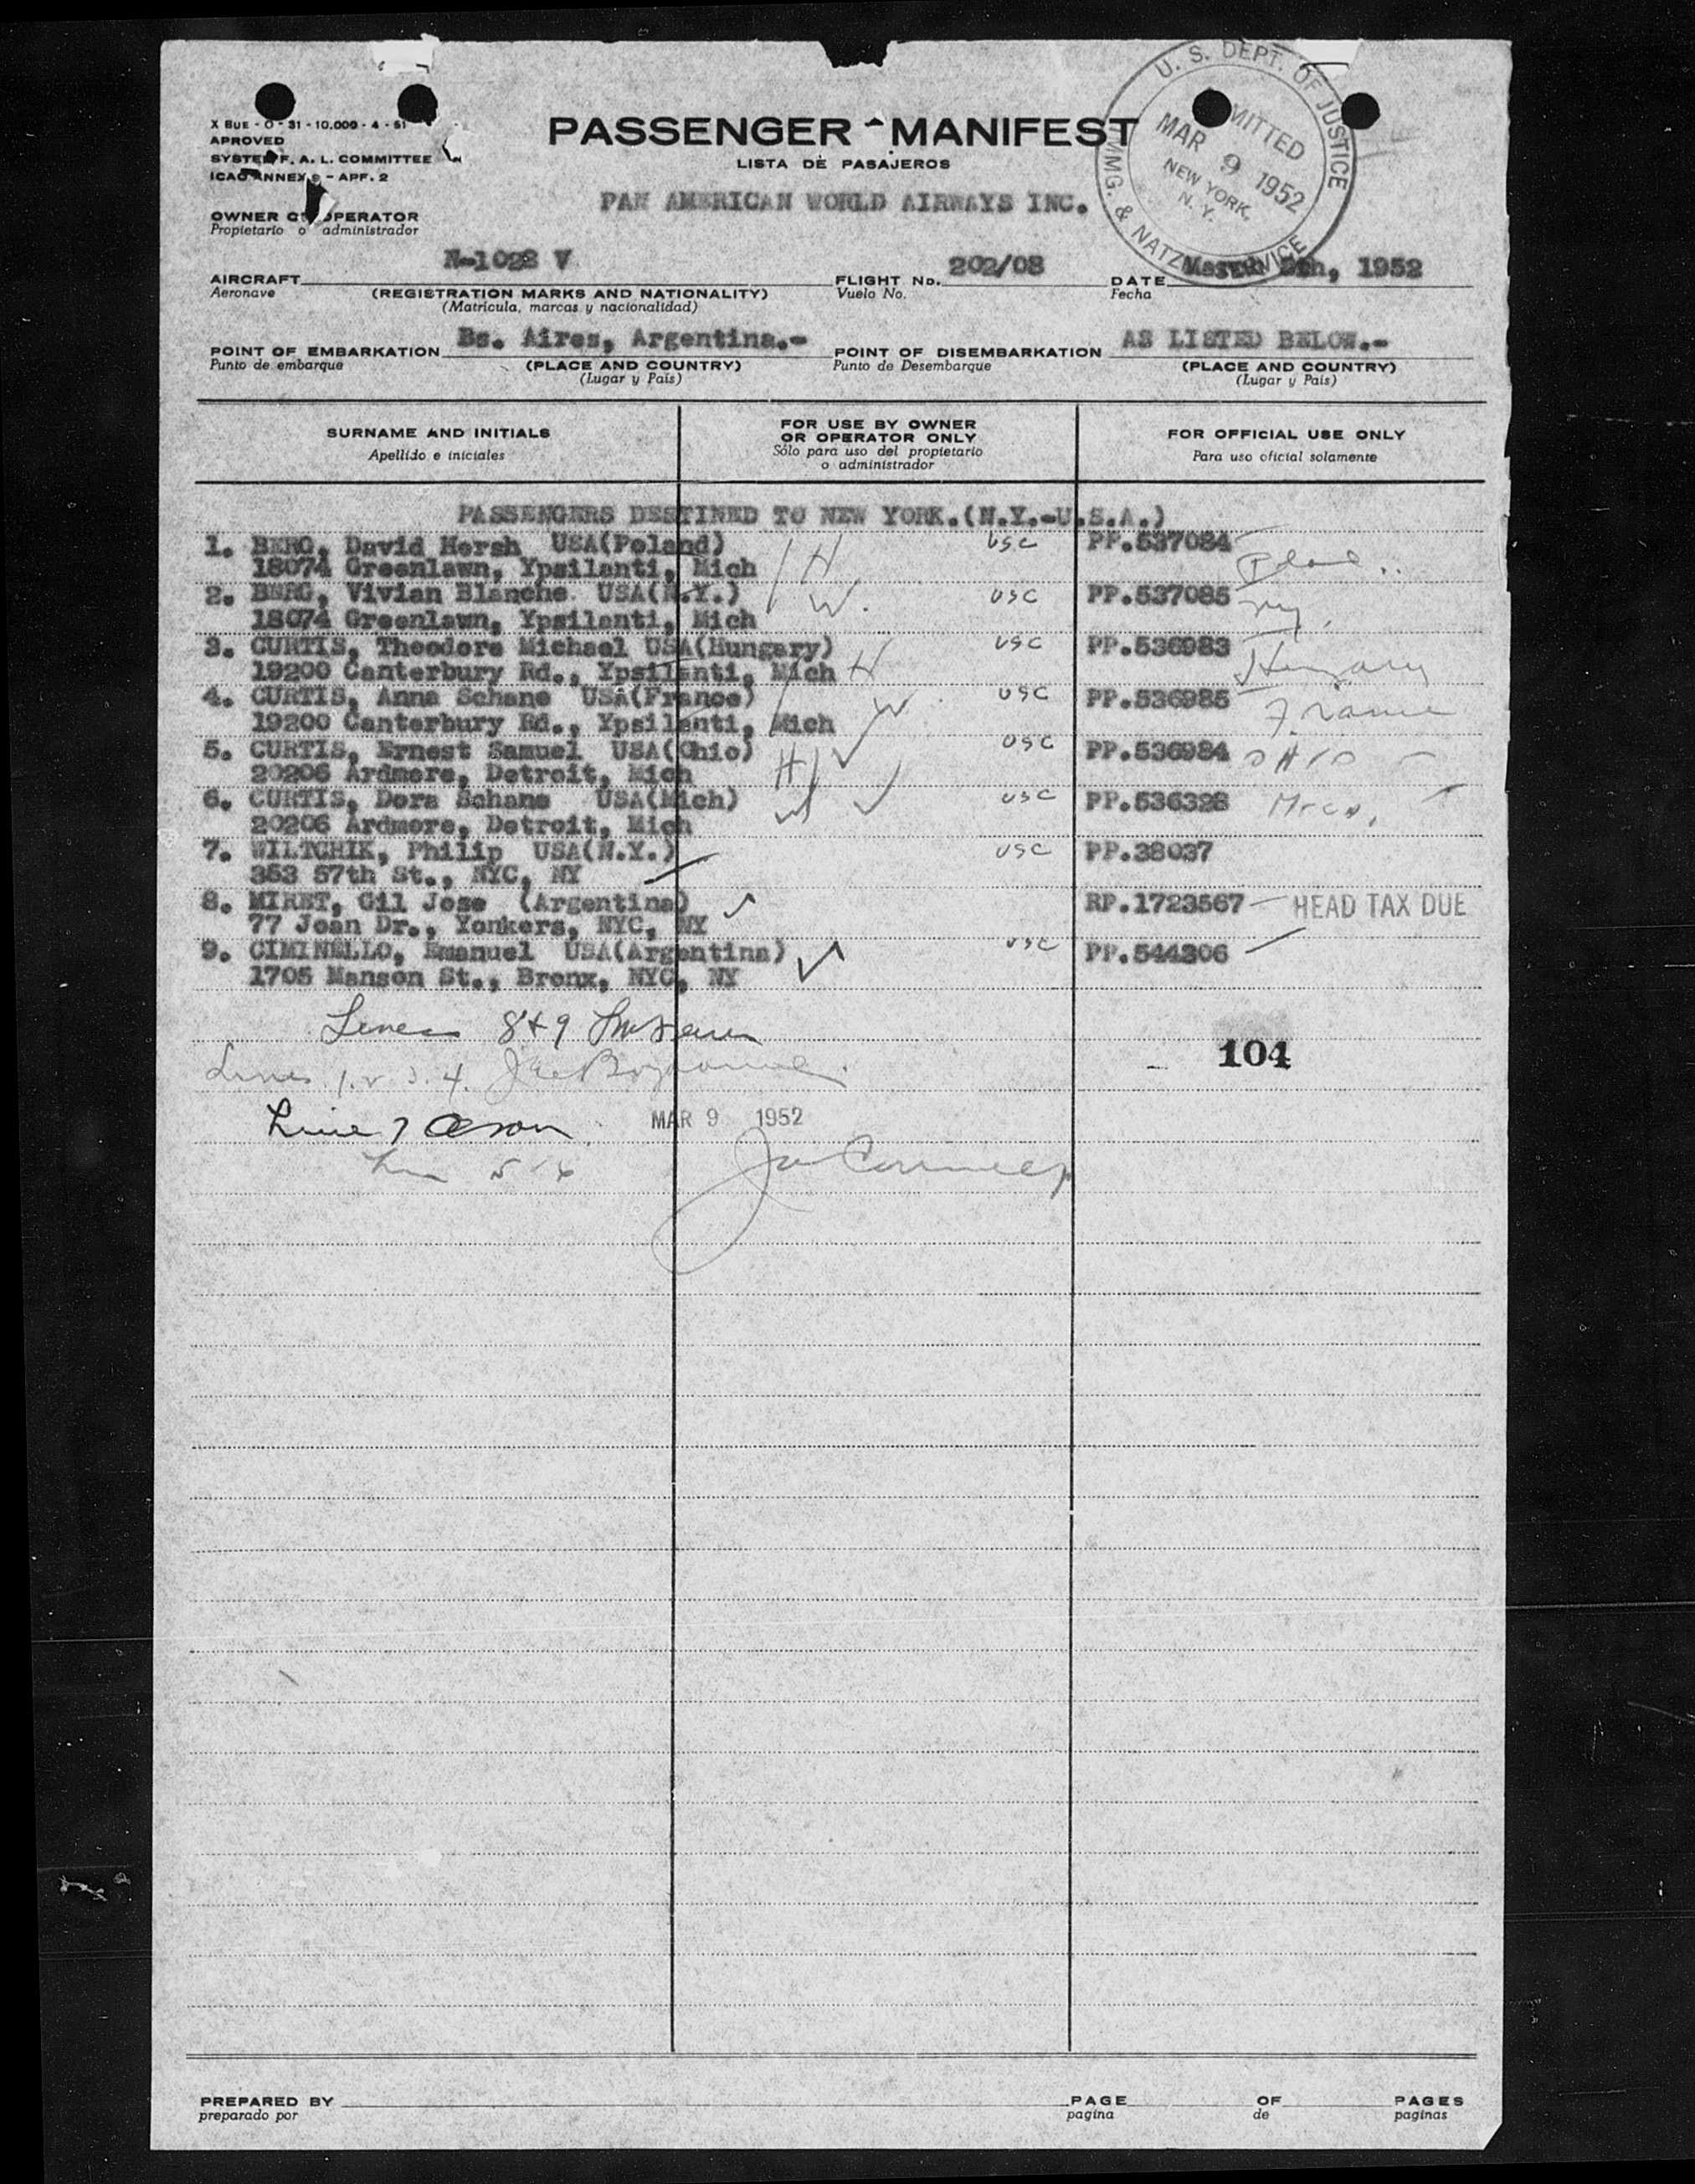 X BUE - O - 31 - 10.000 - 4 - 51
APROVED
SYSTEM F. A. L. COMMITTEE
ICAO ANNEX 9 - APF. 2
PASSENGER MANIFEST
LISTA DE PASAJEROS
PAN AMERICAN WORLD AIRWAYS INC.
U. S. DEPT. OF JUSTICE
IMMG. & NATZ. SERVICE
ADMITTED
MAR 9 1952
NEW YORK,
N. Y.
OWNER OR OPERATOR
Propietario o administrador
AIRCRAFT N-1022 V
Aeronave
(REGISTRATION MARKS AND NATIONALITY)
(Matrícula, marcas y nacionalidad)
FLIGHT No. 202/08
Vuelo No.
DATE March 8th, 1952
Fecha
POINT OF EMBARKATION Bs. Aires, Argentina.-
Punto de embarque
(PLACE AND COUNTRY)
(Lugar y País)
POINT OF DISEMBARKATION AS LISTED BELOW.-
Punto de Desembarque
(PLACE AND COUNTRY)
(Lugar y País)
SURNAME AND INITIALS
Apellido e iniciales
FOR USE BY OWNER
OR OPERATOR ONLY
Sólo para uso del propietario
o administrador
FOR OFFICIAL USE ONLY
Para uso oficial solamente
PASSENGERS DESTINED TO NEW YORK.(N.Y.-U.S.A.)
1. BERG, David Hersh USA(Poland) H USC PP.537084
18074 Greenlawn, Ypsilanti, Mich
2. BERG, Vivian Blanche USA(N.Y.) W. USC PP.537085 NY.
18074 Greenlawn, Ypsilanti, Mich
3. CURTIS, Theodore Michael USA(Hungary) USC PP.536983
19200 Canterbury Rd., Ypsilanti, Mich H Hungary
4. CURTIS, Anna Schane USA(France) W USC PP.536985 France
19200 Canterbury Rd., Ypsilanti, Mich
5. CURTIS, Ernest Samuel USA(Ohio) USC PP.536984 OHIO
20206 Ardmore, Detroit, Mich H
6. CURTIS, Dora Schane USA(Mich) W USC PP.536328 Mich.
20206 Ardmore, Detroit, Mich
7. WILTCHIK, Philip USA(N.Y.) USC PP.38037
353 57th St., NYC, NY
8. MIRET, Gil Jose (Argentina) RP.1723567 HEAD TAX DUE
77 Joan Dr., Yonkers, NYC, NY
9. CIMINELLO, Emanuel USA(Argentina) USC PP.544306
1705 Manson St., Bronx, NYC, NY
Lines 8+9
104
Lines 1. 2 3. 4.
Line 7
MAR 9 1952
5
PREPARED BY
preparado por
PAGE OF PAGES
pagina de paginas